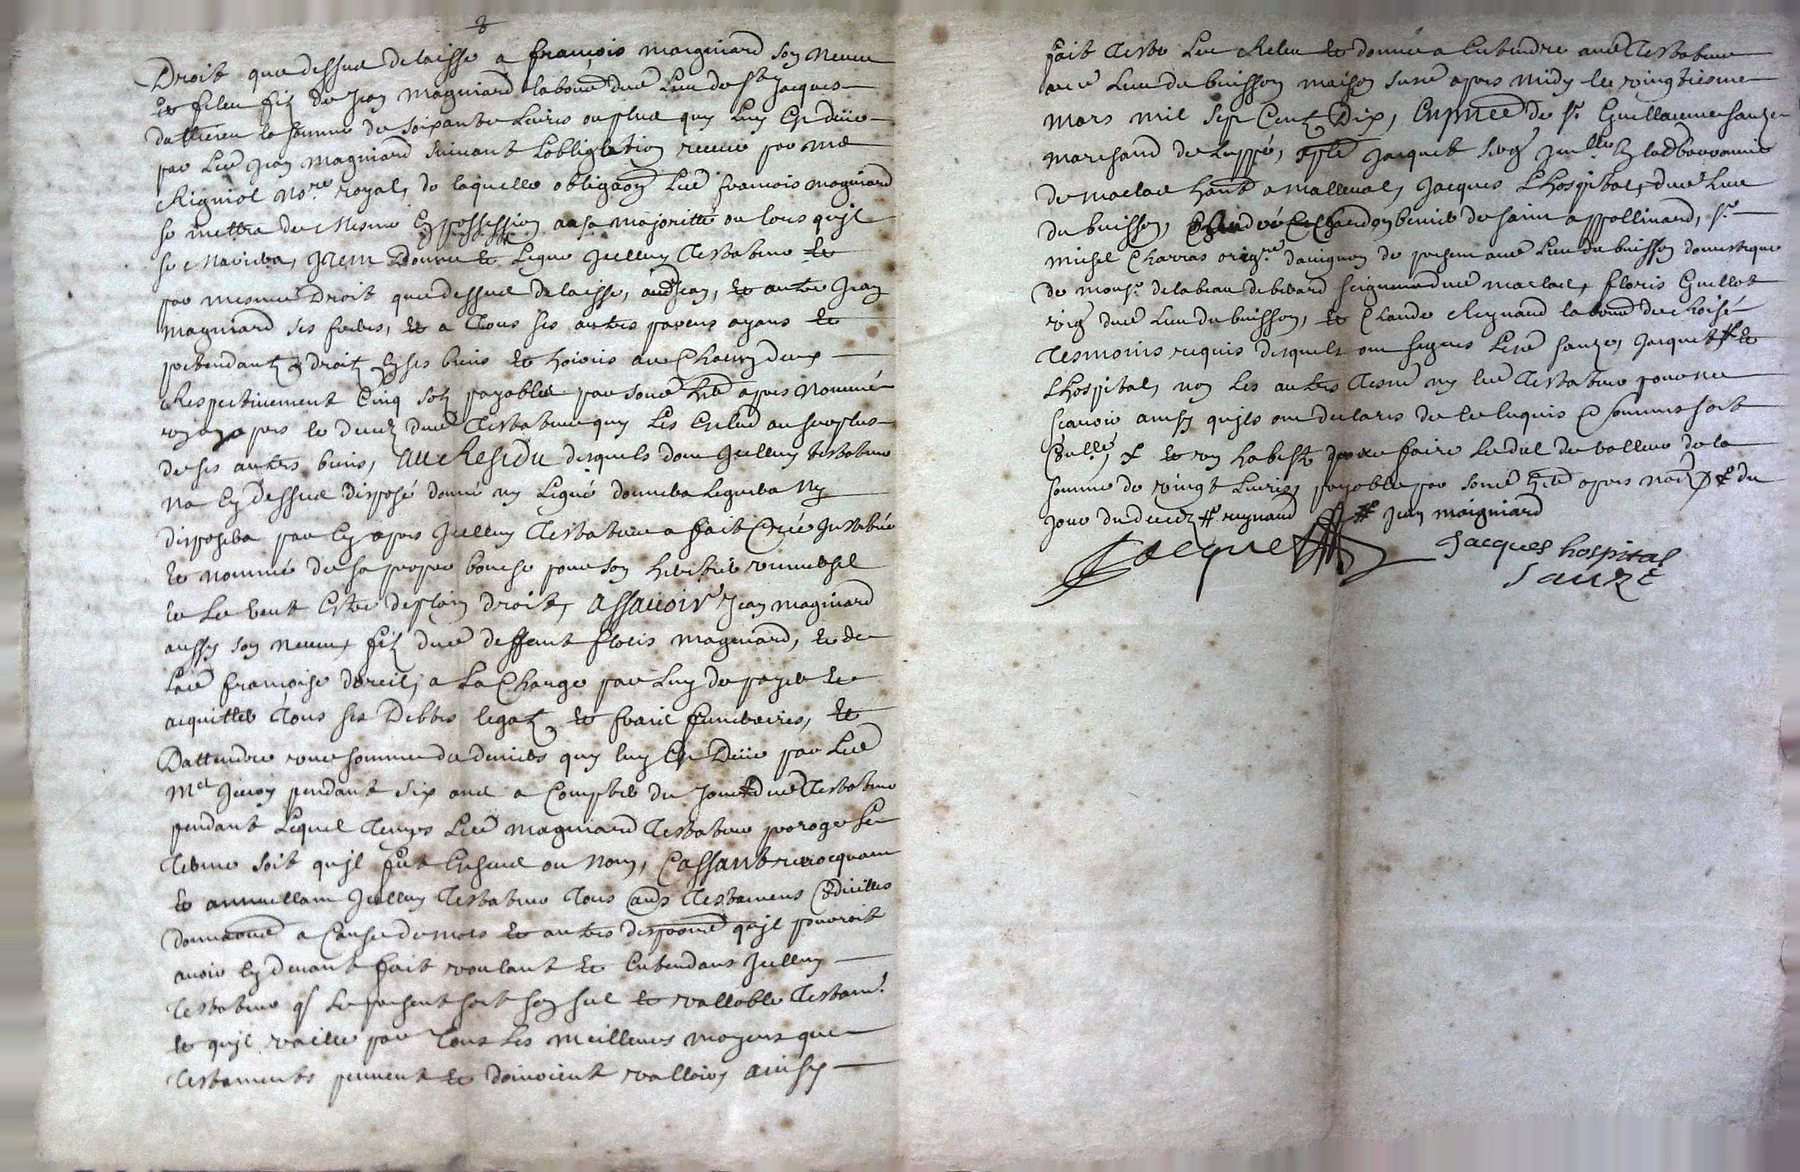 Droit que dessus delaisse a françois magniard son neveu
et filleu filz de Jean magniard laboure dud Lieu de St Jacques
datticieu la somme de soixante Livres ou plus quy Luy est düüe
par Led Jean magniard suivant Lobligation receue par me
Rigniol nore royal, de laquelle obligaon Led françois magniard
se mettra de mesme En possession a sa majoritté ou lors quil
se Mariera, Item Donne et Legue Icelluy Testateur et
par mesme Droit que dessus delaisse, aud Jean, et autre Jean
magniard ses freres, et a Tous ses autres parens ayans et
pretendantz droit En ses biens et hoirie a un Chacun deux
Respectivement Cinq solz payables par sond her apres nommé
apres le decez dud Testateur quy Les Exclud au surplus
de ses autres biens, au Residu desquels dont Icelluy testateur
Na Cy dessus disposé donné ny Legué donnera Leguera Ny
disposera par Cy apres Icelluy Testateur a fait Créé Institué
et nommé de sa propre bouche pour son heritier universel
et Le veut Estre de plain droit, assavoir Jean magniard
aussy son neveu, filz dud deffunt floris magniard, et de
Lad françoise doreil, a La Charge par Luy de payer et
acquitter Tous ses Debtes legatz et frais funeraires, et
Dattendre une somme de deniers quy luy Est Düüe par Led
Me pendant six ans a Compter du Jour dud Testateur
pendant Lequel Temps Led magniard Testateur proroge Le
Terme soit quil fut Escheu ou Non, Cassant revocquant
et annullant Icelluy Testateur Tous aues Testaments Codicilles
donnaons a Cause de mort et autres disposons quil pourroit
avoir Cy devant fait voulant et Entendant Icelluy
Testateur q Le present soit son seul et vallable Testamt
et quil vaille par Tous Les meilleurs moyens que
Testaments peuvent et doivoient valloir ainsy
fait Testé Leu Releu et donné a Entendre aud Testateur
aud Lieu du buisson maison sienne apres midy le vingtiesme
mars mil sept Cent Dix, En pnce de sr Guillaume sauze
marchand de Luppé, Jacquet
de maclas habt a mallevat, Jacques Lhospital, dud Lieu
du buisson, de saint appollinard, sr
michel Charras orige davignon de present aud Lieu du buisson domestique
de monsr seigneur dud maclas, floris Guillot
vig dud Lieu du buisson, et Claude Reynaud laboure de Roisé
Tesmoins requis desquels ont signes Led sauze, Jacquet et
Lhospital, non Les autres Tesm ny led Testateur pour ne
scavoir ainsy quils ont declaré de ce Enquis et sommes soit
et un habist pour faire Le dul de valleur de la
somme de vingt Livres payable par sond her apres nom du
jour du decez reynaud Jean maigniard
Jacquet Jacques hospital
Sauze